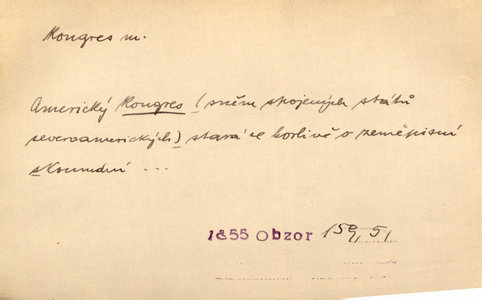 Kongres m.
Americký Kongres (sněm spojených států
severoamerických) stará se horlivě o zeměpisní
skoumání ...
1855 Obzor 159, 51